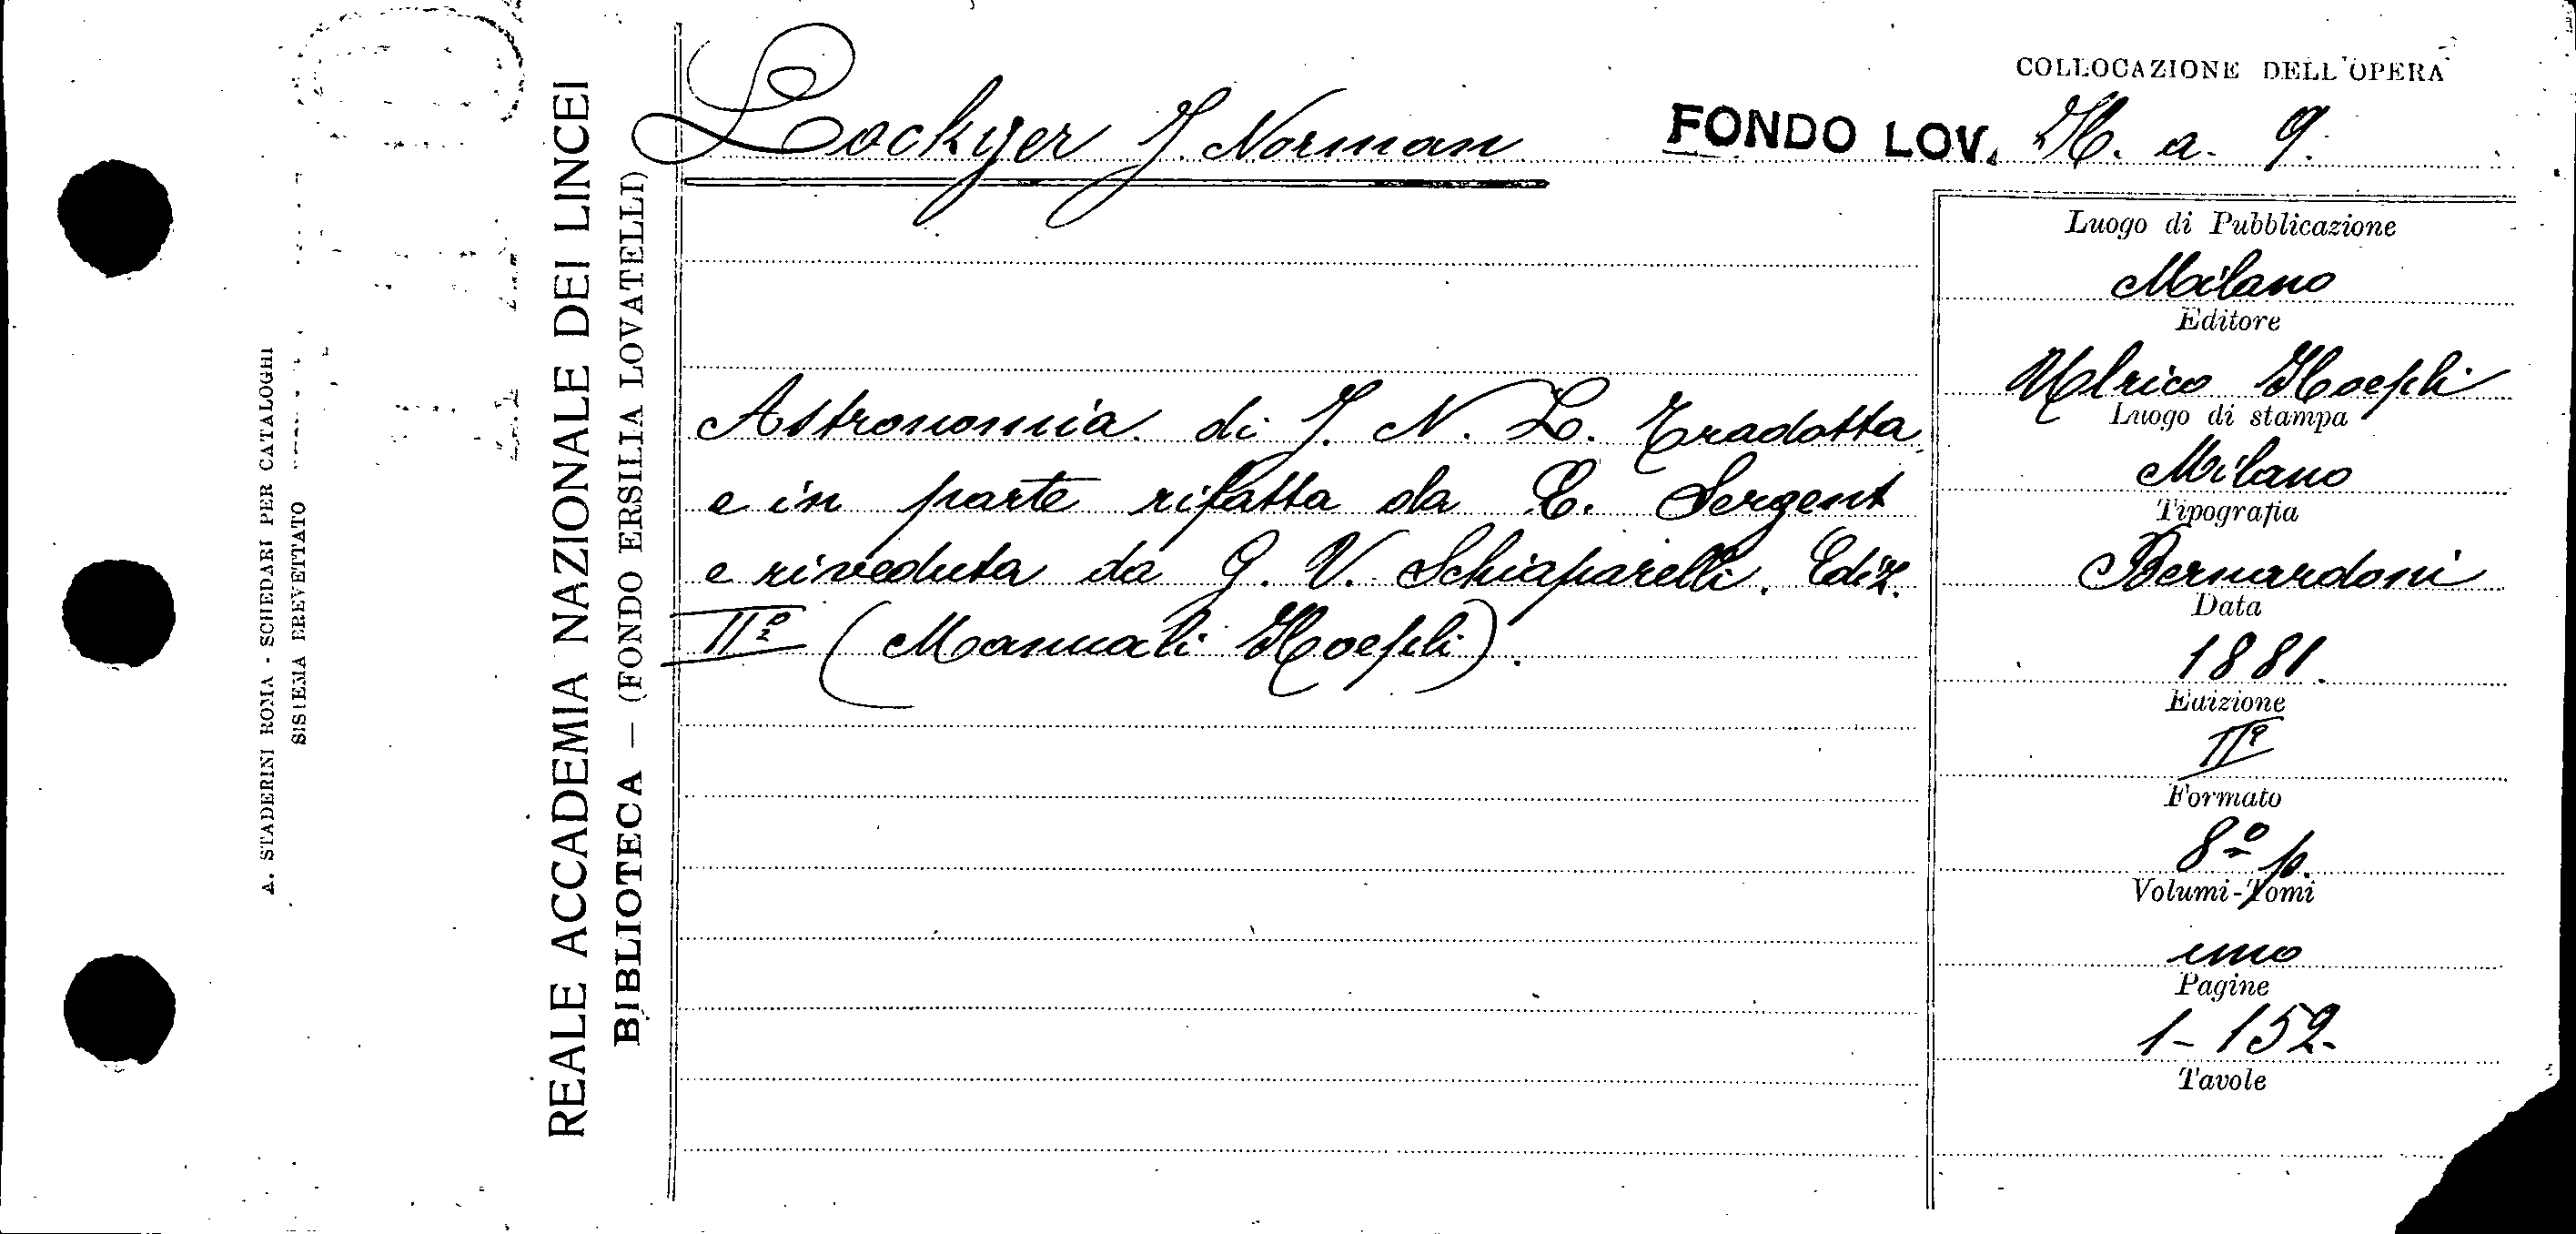 A. STADERINI ROMA - SCHEDARI PER CATALOGHI
SISTEMA BREVETTATO
REALE ACCADEMIA NAZIONALE DEI LINCEI
BIBLIOTECA — (FONDO ERSILIA LOVATELLI)
Lockyer J. Norman
COLLOCAZIONE DELL'OPERA
FONDO LOV. H. a. 9.
Astronomia di J. N. L. Tradotta
e in parte rifatta da E. Sergent
e riveduta da G. V. Schiaparelli. Ediz.
IIª (Manuali Hoepli).
Luogo di Pubblicazione
Milano
Editore
Ulrico Hoepli
Luogo di stampa
Milano
Tipografia
Bernardoni
Data
1881.
Edizione
IIª
Formato
8º p.
Volumi-Tomi
uno
Pagine
1-152.
Tavole